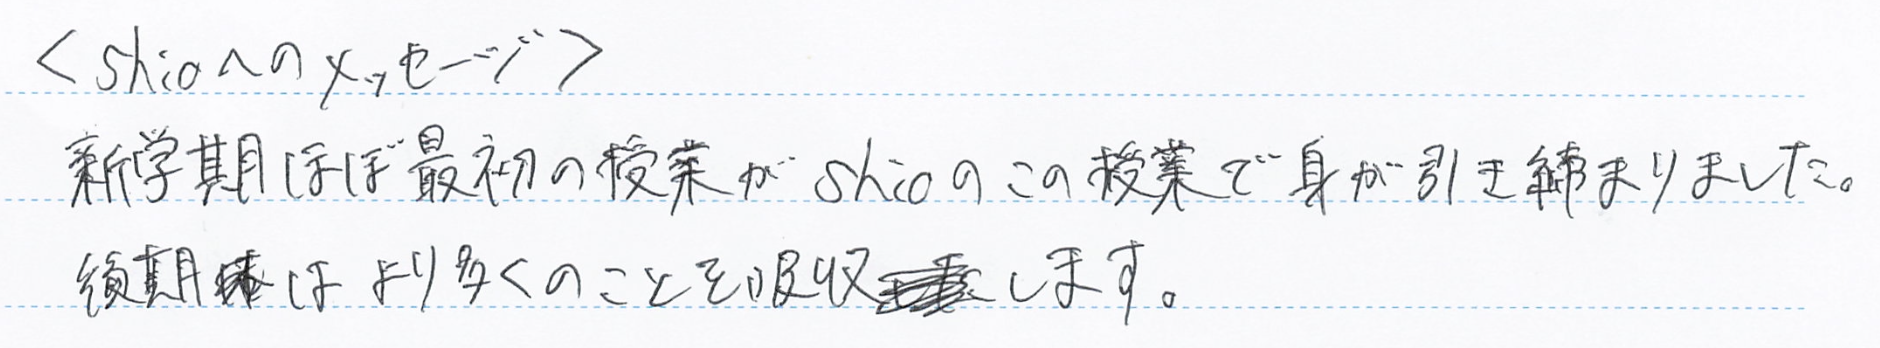 <shioへのメッセージ>
新学期ほぼ最初の授業がshioのこの授業で身が引き締まりました。
後期はより多くのことを吸収します。